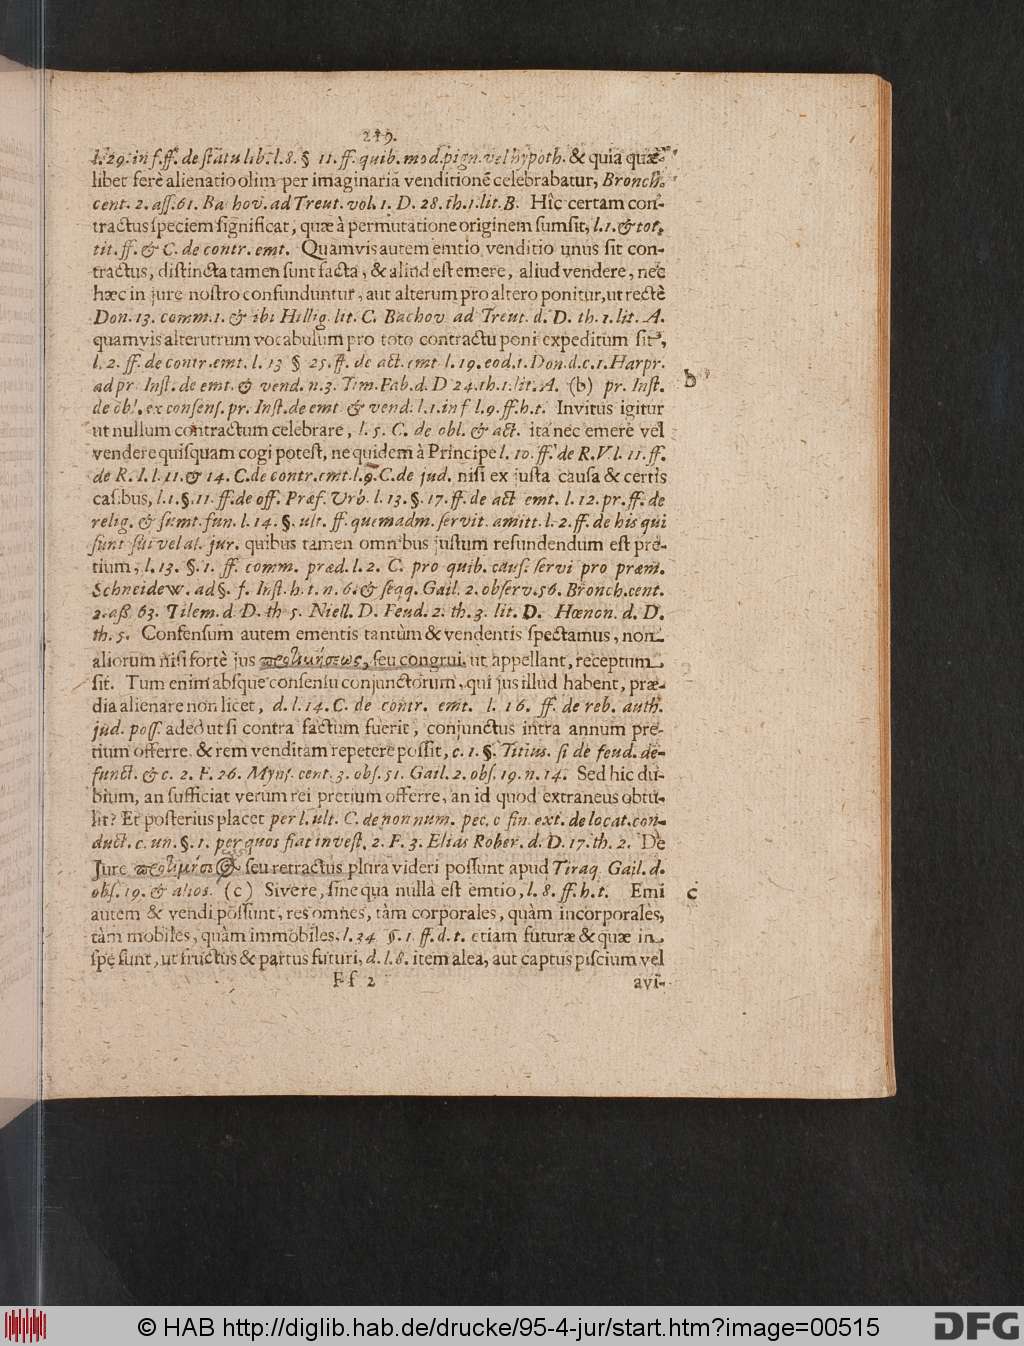 219.
l. 29. in f. ff. de ſtatu lib. l. 8. § 11. ff. quib. mod. pign. vel hypoth. & quia quæ-
libet ferè alienatio olim per imaginariā venditionē celebrabatur, Bronch.
cent. 2. aſſ. 61. Bachov. ad Treut. vol. 1. D. 28. th. 1. lit. B. Hîc certam con-
tractus ſpeciem ſignificat, quæ à permutatione originem ſumſit, l. 1. & tot.
tit. ff. & C. de contr. emt. Quamvis autem emtio venditio unus ſit con-
tractus, diſtincta tamen ſunt facta, & aliud eſt emere, aliud vendere, nec
hæc in jure noſtro confunduntur, aut alterum pro altero ponitur, ut rectè
Don. 13. comm. 1. & ibi Hillig. lit. C. Bachov. ad Treut. d. D. th. 1. lit. A.
quamvis alterutrum vocabulum pro toto contractu poni expeditum ſit,
l. 2. ff. de contr. emt. l. 13 § 25. ff. de act. emt l. 19. eod. 1. Don. d. c. 1. Harpr.
ad pr. Inſt. de emt. & vend. n. 3. Tim. Fab. d. D 24. th. 1. lit. A. (b) pr. Inſt.
b
de obl. ex conſenſ. pr. Inſt. de emt & vend. l. 1. in f l. 9. ff. h. t. Invitus igitur
ut nullum contractum celebrare, l. 5. C. de obl. & act. ita nec emere vel
vendere quiſquam cogi poteſt, ne quidem à Principe l. 10. ff. de R. V l. 11. ff.
de R. I. l. 11. & 14. C. de contr. emt. l. 9. C. de jud. niſi ex juſta cauſa & certis
caſibus, l. 1. §. 11. ff. de off. Præf. Urb. l. 13. §. 17. ff. de act emt. l. 12. pr. ff. de
relig. & ſumt. fun. l. 14. §. ult. ff. quemadm. ſervit. amitt. l. 2. ff. de his qui
ſunt ſui vel al. jur. quibus tamen omnibus juſtum refundendum eſt pre-
tium, l. 13. §. 1. ff. comm. præd. l. 2. C. pro quib. cauſ. ſervi pro præm.
Schneidew. ad §. f. Inſt. h. t. n. 6. & ſeqq. Gail. 2. obſerv. 56. Bronch. cent.
2. aß 63. Tilem. d D. th 5. Niell. D. Feud. 2. th. 3. lit. D. Hœnon. d. D.
th. 5. Conſenſum autem ementis tantùm & vendentis ſpectamus, non
aliorum niſi fortè jus προτιμήσεως, ſeu congrui, ut appellant, receptum
ſit. Tum enim abſque conſenſu conjunctorum, qui jus illud habent, præ-
dia alienare non licet, d. l. 14. C. de contr. emt. l. 16. ff. de reb. auth.
jud. poſſ. adeò ut ſi contra factum fuerit, conjunctus intra annum pre-
tium offerre & rem venditam repetere poſſit, c. 1. §. Titius. ſi de feud. de-
funct. & c. 2. F. 26. Mynſ. cent. 3. obſ. 51. Gail. 2. obſ. 19. n. 14. Sed hic du-
bium, an ſufficiat verum rei pretium offerre, an id quod extraneus obtu-
lit? Et poſterius placet per l. ult. C. de non num. pec. c fin. ext. de locat. con-
duct. c. un. §. 1. per quos fiat inveſt, 2. F. 3. Elias Rober. d. D. 17. th. 2. De
Jure προτιμήσεως ſeu retractus plura videri poſſunt apud Tiraq. Gail. d.
obſ. 19. & alios. (c) Sivere, ſine qua nulla eſt emtio, l. 8. ff. h. t. Emi
c
autem & vendi poſſunt, res omnes, tàm corporales, quàm incorporales,
tàm mobiles, quàm immobiles, l. 34 §. 1 ff. d. t. etiam futuræ & quæ in
ſpe ſunt, ut fructus & partus futuri, d. l. 8. item alea, aut captus piſcium vel
Ff 2
avi-
© HAB http://diglib.hab.de/drucke/95-4-jur/start.htm?image=00515
DFG